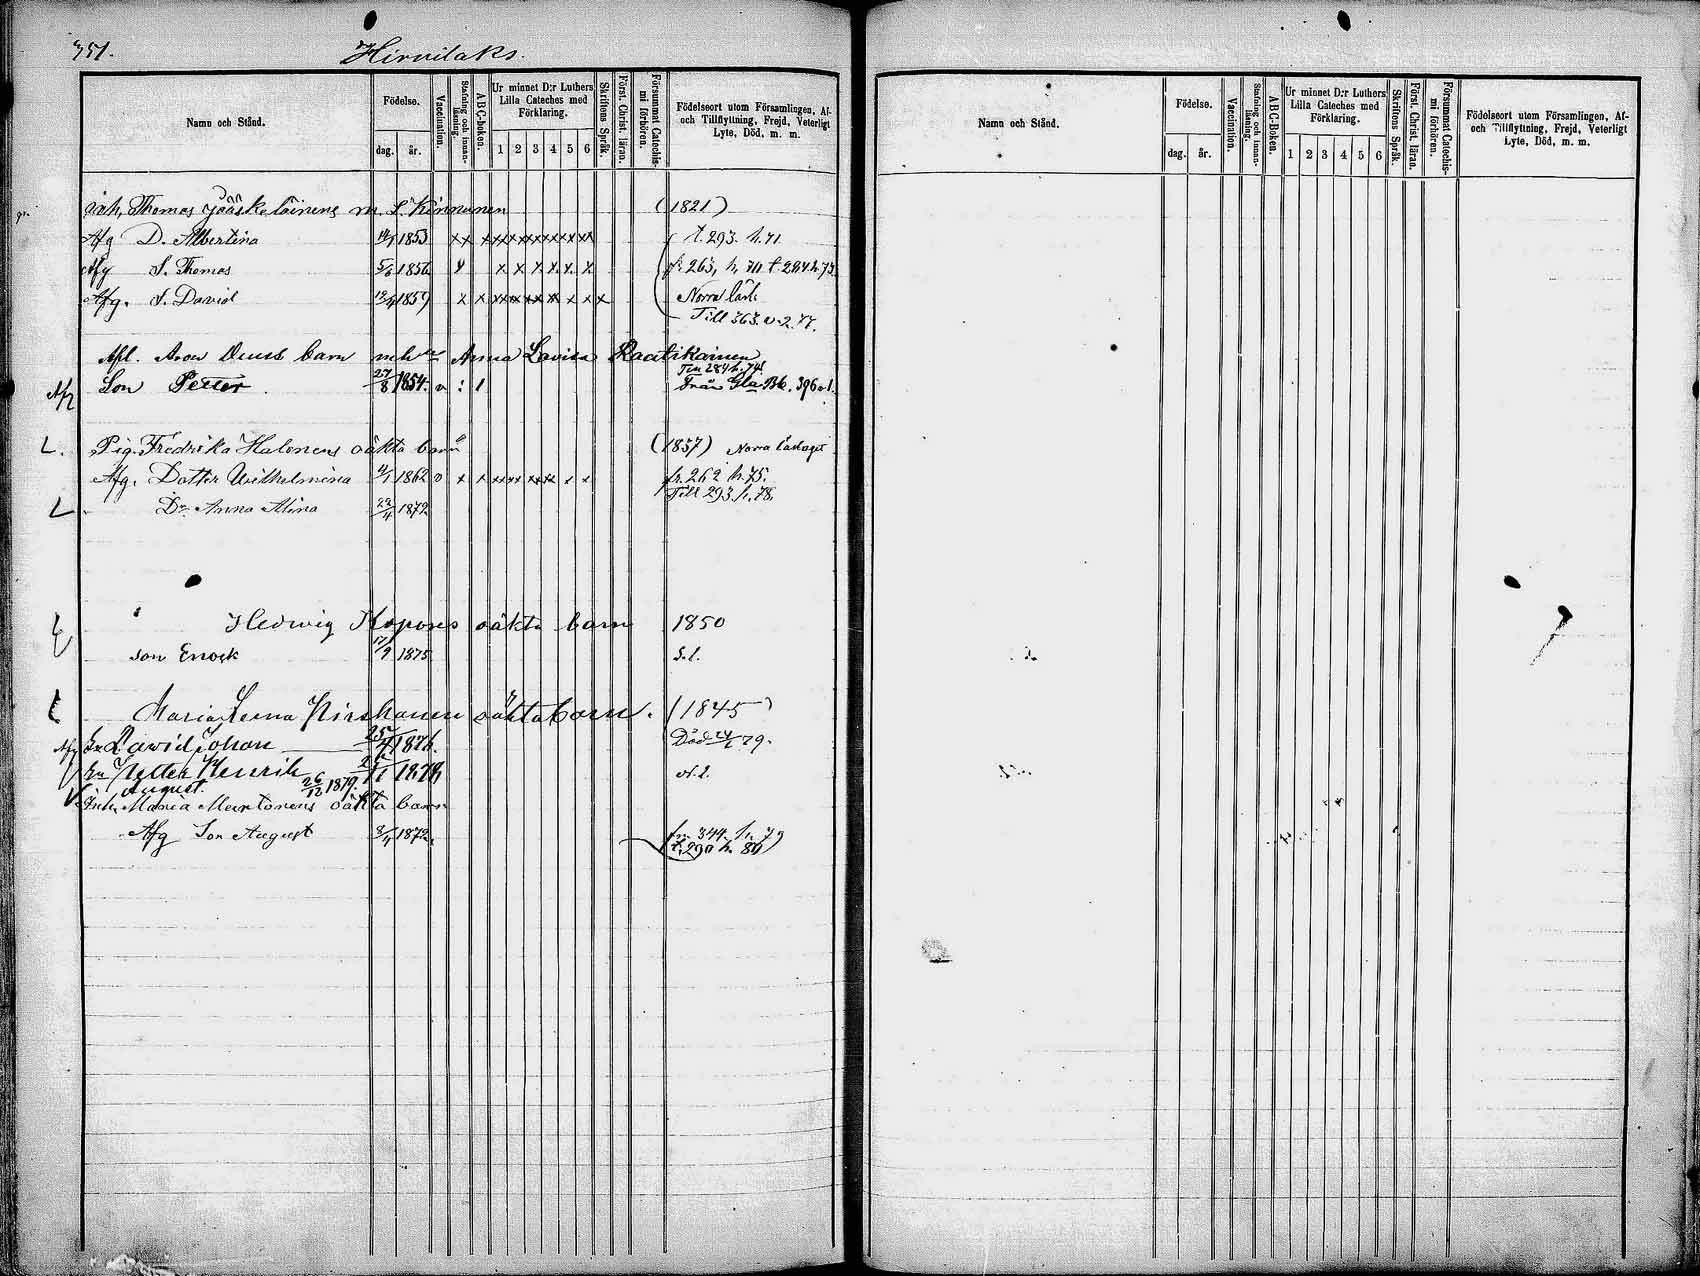 351.
Hirvilaks.
Namn och Stånd.
Födelse.
dag.
år.
Vaccination.
Stafning och innanläsning.
ABC-boken.
Ur minnet D:r Luthers Lilla Cateches med Förklaring.
1 2 3 4 5 6
Skriftens Språk.
Först. Christ. läran.
Försummat Catechismi förhören.
Födelseort utom Församlingen, Af- och Tillflyttning, Frejd, Veterligt Lyte, Död, m. m.
inh, Thomas Jääskeläinens m. S. Kinnunen (1821)
Afg D. Albertina 1853 t. 293. h. 71
Afg S. Thomas 5/6 1856 fr 263, h. 70 t. 294 h. 73
Afg. S. David 1859 Norra lärl.
Till 363. v. 2. 77.
barn Anna Lovisa Raatikainen
Till 284 h. 74
Afg Son Petter 27/8 1854. v Från Gla Bk. 396
Pig. Fredrika Halonens oäkta barn (1837) Norra
Afg. Dotter Wilhelmina 1862 v fr. 262 h. 75.
Till 293 h. 78
Dr. Anna Alina 22/4 1872
Hedwig Kopones oäkta barn 1850
son Enock 17/9 1875 s. l.
Maria Leena Pirskanen oäkta barn. (1845)
Afg Sn David Johan 25/4 1876. Död 79.
Sn Petter Henrik 1878
August. 26/12 1879.
Inh. Maria Martonens oäkta barn
Afg Son August 8/4 1872. fr. 344. h. 79
t. 290 h. 80
Namn och Stånd.
Födelse.
dag.
år.
Vaccination.
Stafning och innanläsning.
ABC-Boken.
Ur minnet D:r Luthers Lilla Cateches med Förklaring.
1 2 3 4 5 6
Skriftens Språk.
Först. Christ. läran.
Försummat Catechismi förhören.
Födelseort utom Församlingen, Af- och Tillflyttning, Frejd, Veterligt Lyte, Död, m. m.